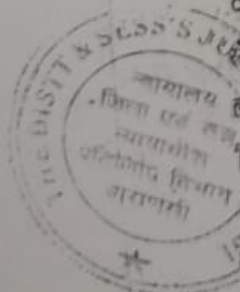 THE DISTT & SESS'S JU
न्यायालय
जिला एवं सत्र
न्यायाधीश
प्रतिलिपि विभाग
वाराणसी